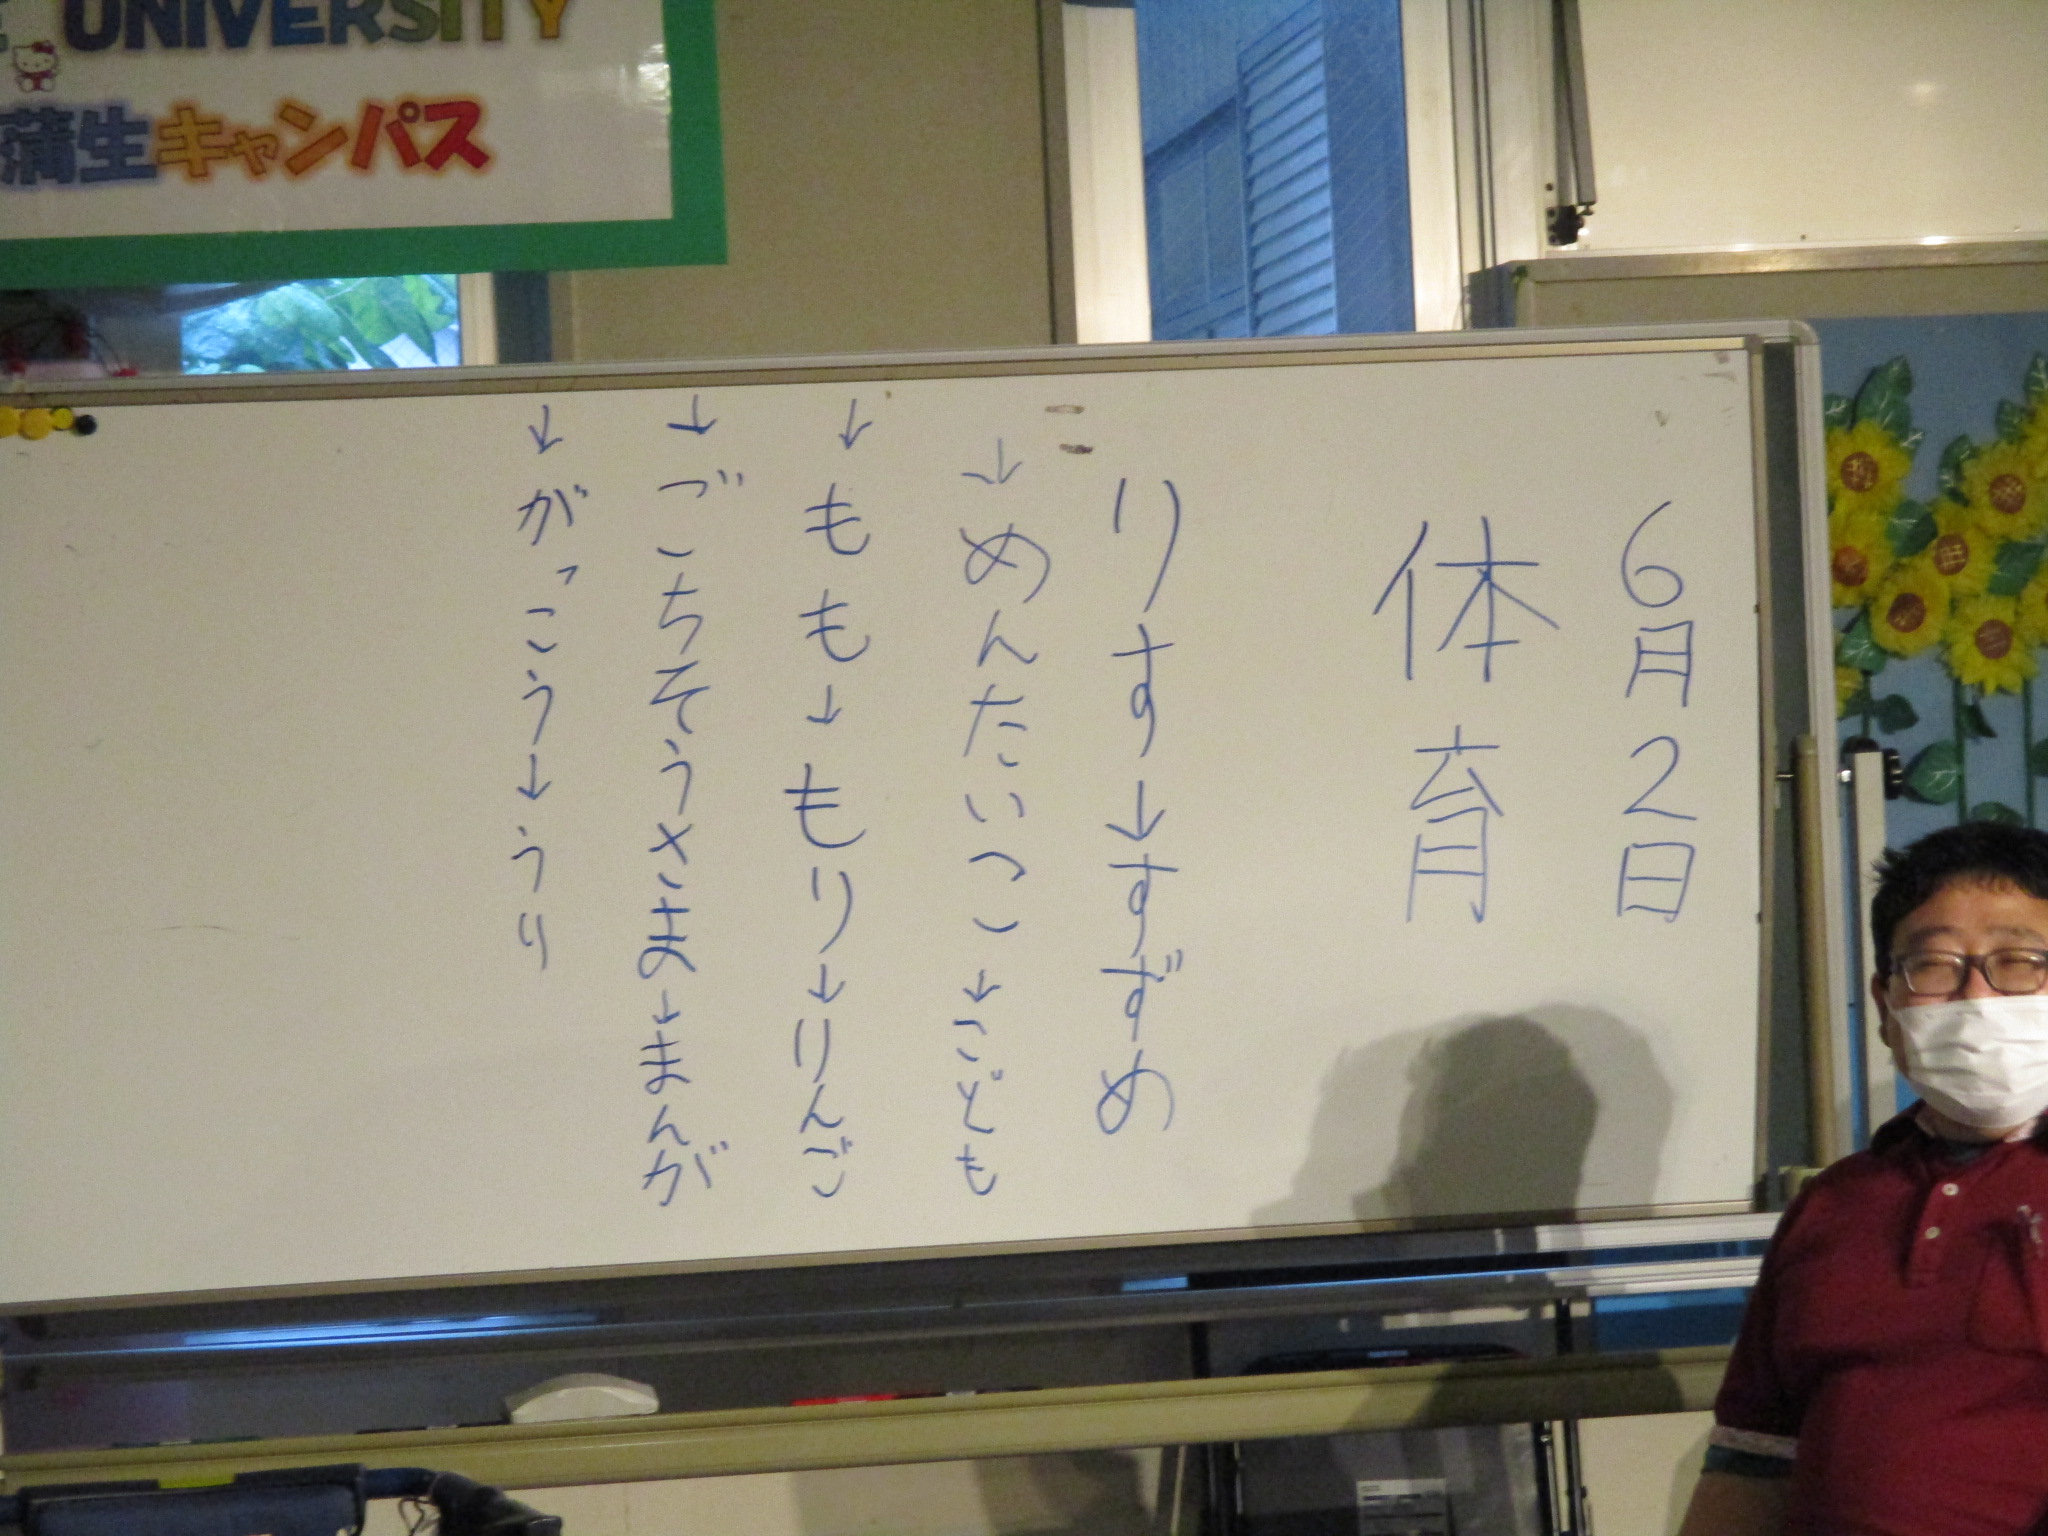 UNIVERSITY
蒲生キャンパス
6月2日
体育
りす→すずめ
→めんたいこ→こども
→もも→もり→りんご
→ごちそうさま→まんが
→がっこう→うり